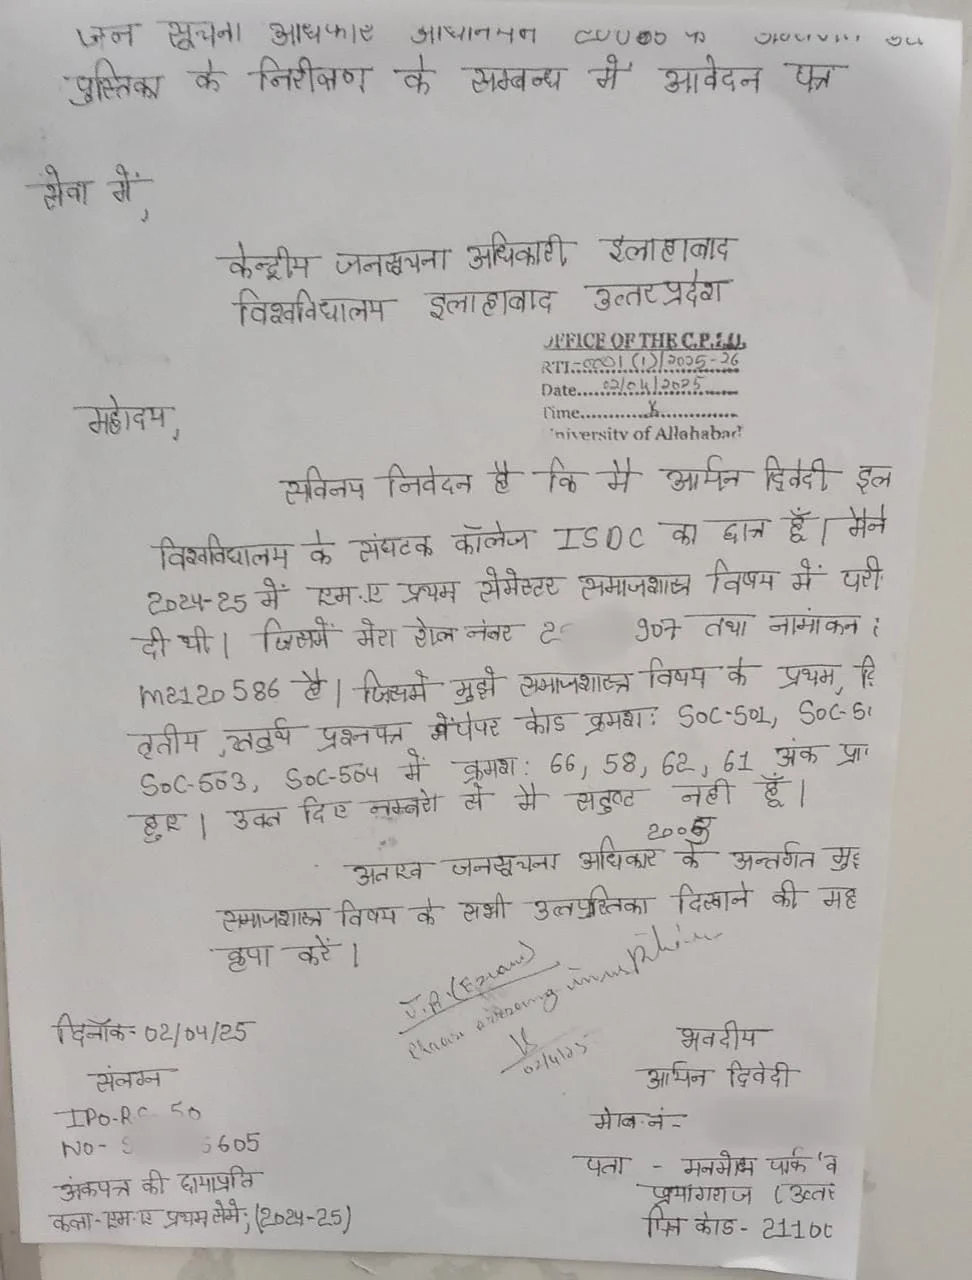 जन सूचना अधिकार
पुस्तिका के निरीक्षण के सम्बन्ध में आवेदन पत्र
सेवा में,
केन्द्रीय जनसूचना अधिकारी इलाहाबाद
विश्वविद्यालय इलाहाबाद उत्तरप्रदेश
OFFICE OF THE C.P.I.O.
RTI-0001(1)/2025-26
Date....02/04/2025
Time
University of Allahabad
महोदय,
सविनय निवेदन है कि मै आर्यन द्विवेदी इल
विश्वविद्यालय के संघटक कॉलेज ISDC का छात्र हूँ। मैने
2024-25 में एम.ए प्रथम सेमेस्टर समाजशास्त्र विषय में परी
दी थी। जिसमें मेरा रोल नंबर 2 907 तथा नामांकन
M2120586 है। जिसमे मुझे समाजशास्त्र विषय के प्रथम, द्वि
तृतीय, चतुर्थ प्रश्नपत्र में पेपर कोड क्रमश: SOC-501, SOC-5
SOC-503, SOC-504 में क्रमश: 66, 58, 62, 61 अंक प्रा
हुए। उक्त दिए नम्बरो से मै सतुष्ट नही हूँ।
2005
अतएव जनसूचना अधिकार के अन्तर्गत मु
समाजशास्त्र विषय के सभी उत्तपुस्तिका दिखाने की मह
कृपा करें।
J.R.(Exam)
02/4/25
दिनाँक- 02/04/25
भवदीय
संलग्न
आर्यन द्विवेदी
IPO-RC 50
मोब.नं-
NO- 605
पता - मनमोहन पार्क
अंकपत्र की छायाप्रति
प्रयागराज (उत्तर
कक्षा-एम.ए प्रथम सेमे.(2024-25)
पिन कोड - 2110